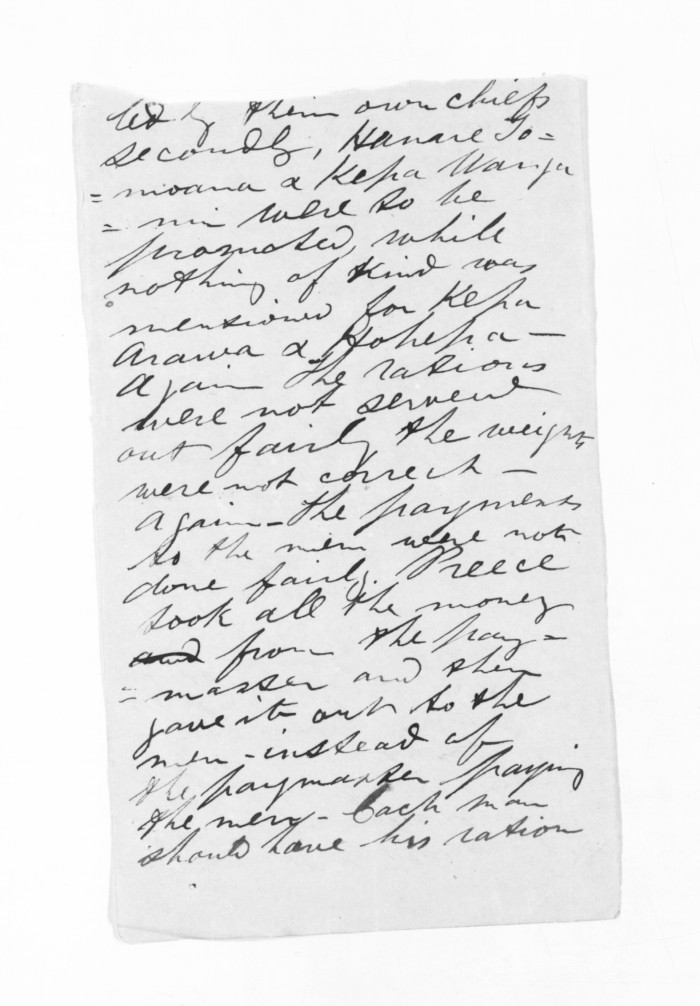 led by their own chiefs
secondly, Hanare To=
=moana & Kepa Wanga
= nui were to be
promoted, while
nothing of kind was
mentioned for Kepa
Arawa & Hohepa —
Again the rations
were not served
out fairly the weights
were not correct —
Again — the payments
to the men were not
done fairly. Preece
took all the money
and from the pay=
=master and then
gave it out to the
men - instead of
the paymaster paying
the men - Each man
should have his ration